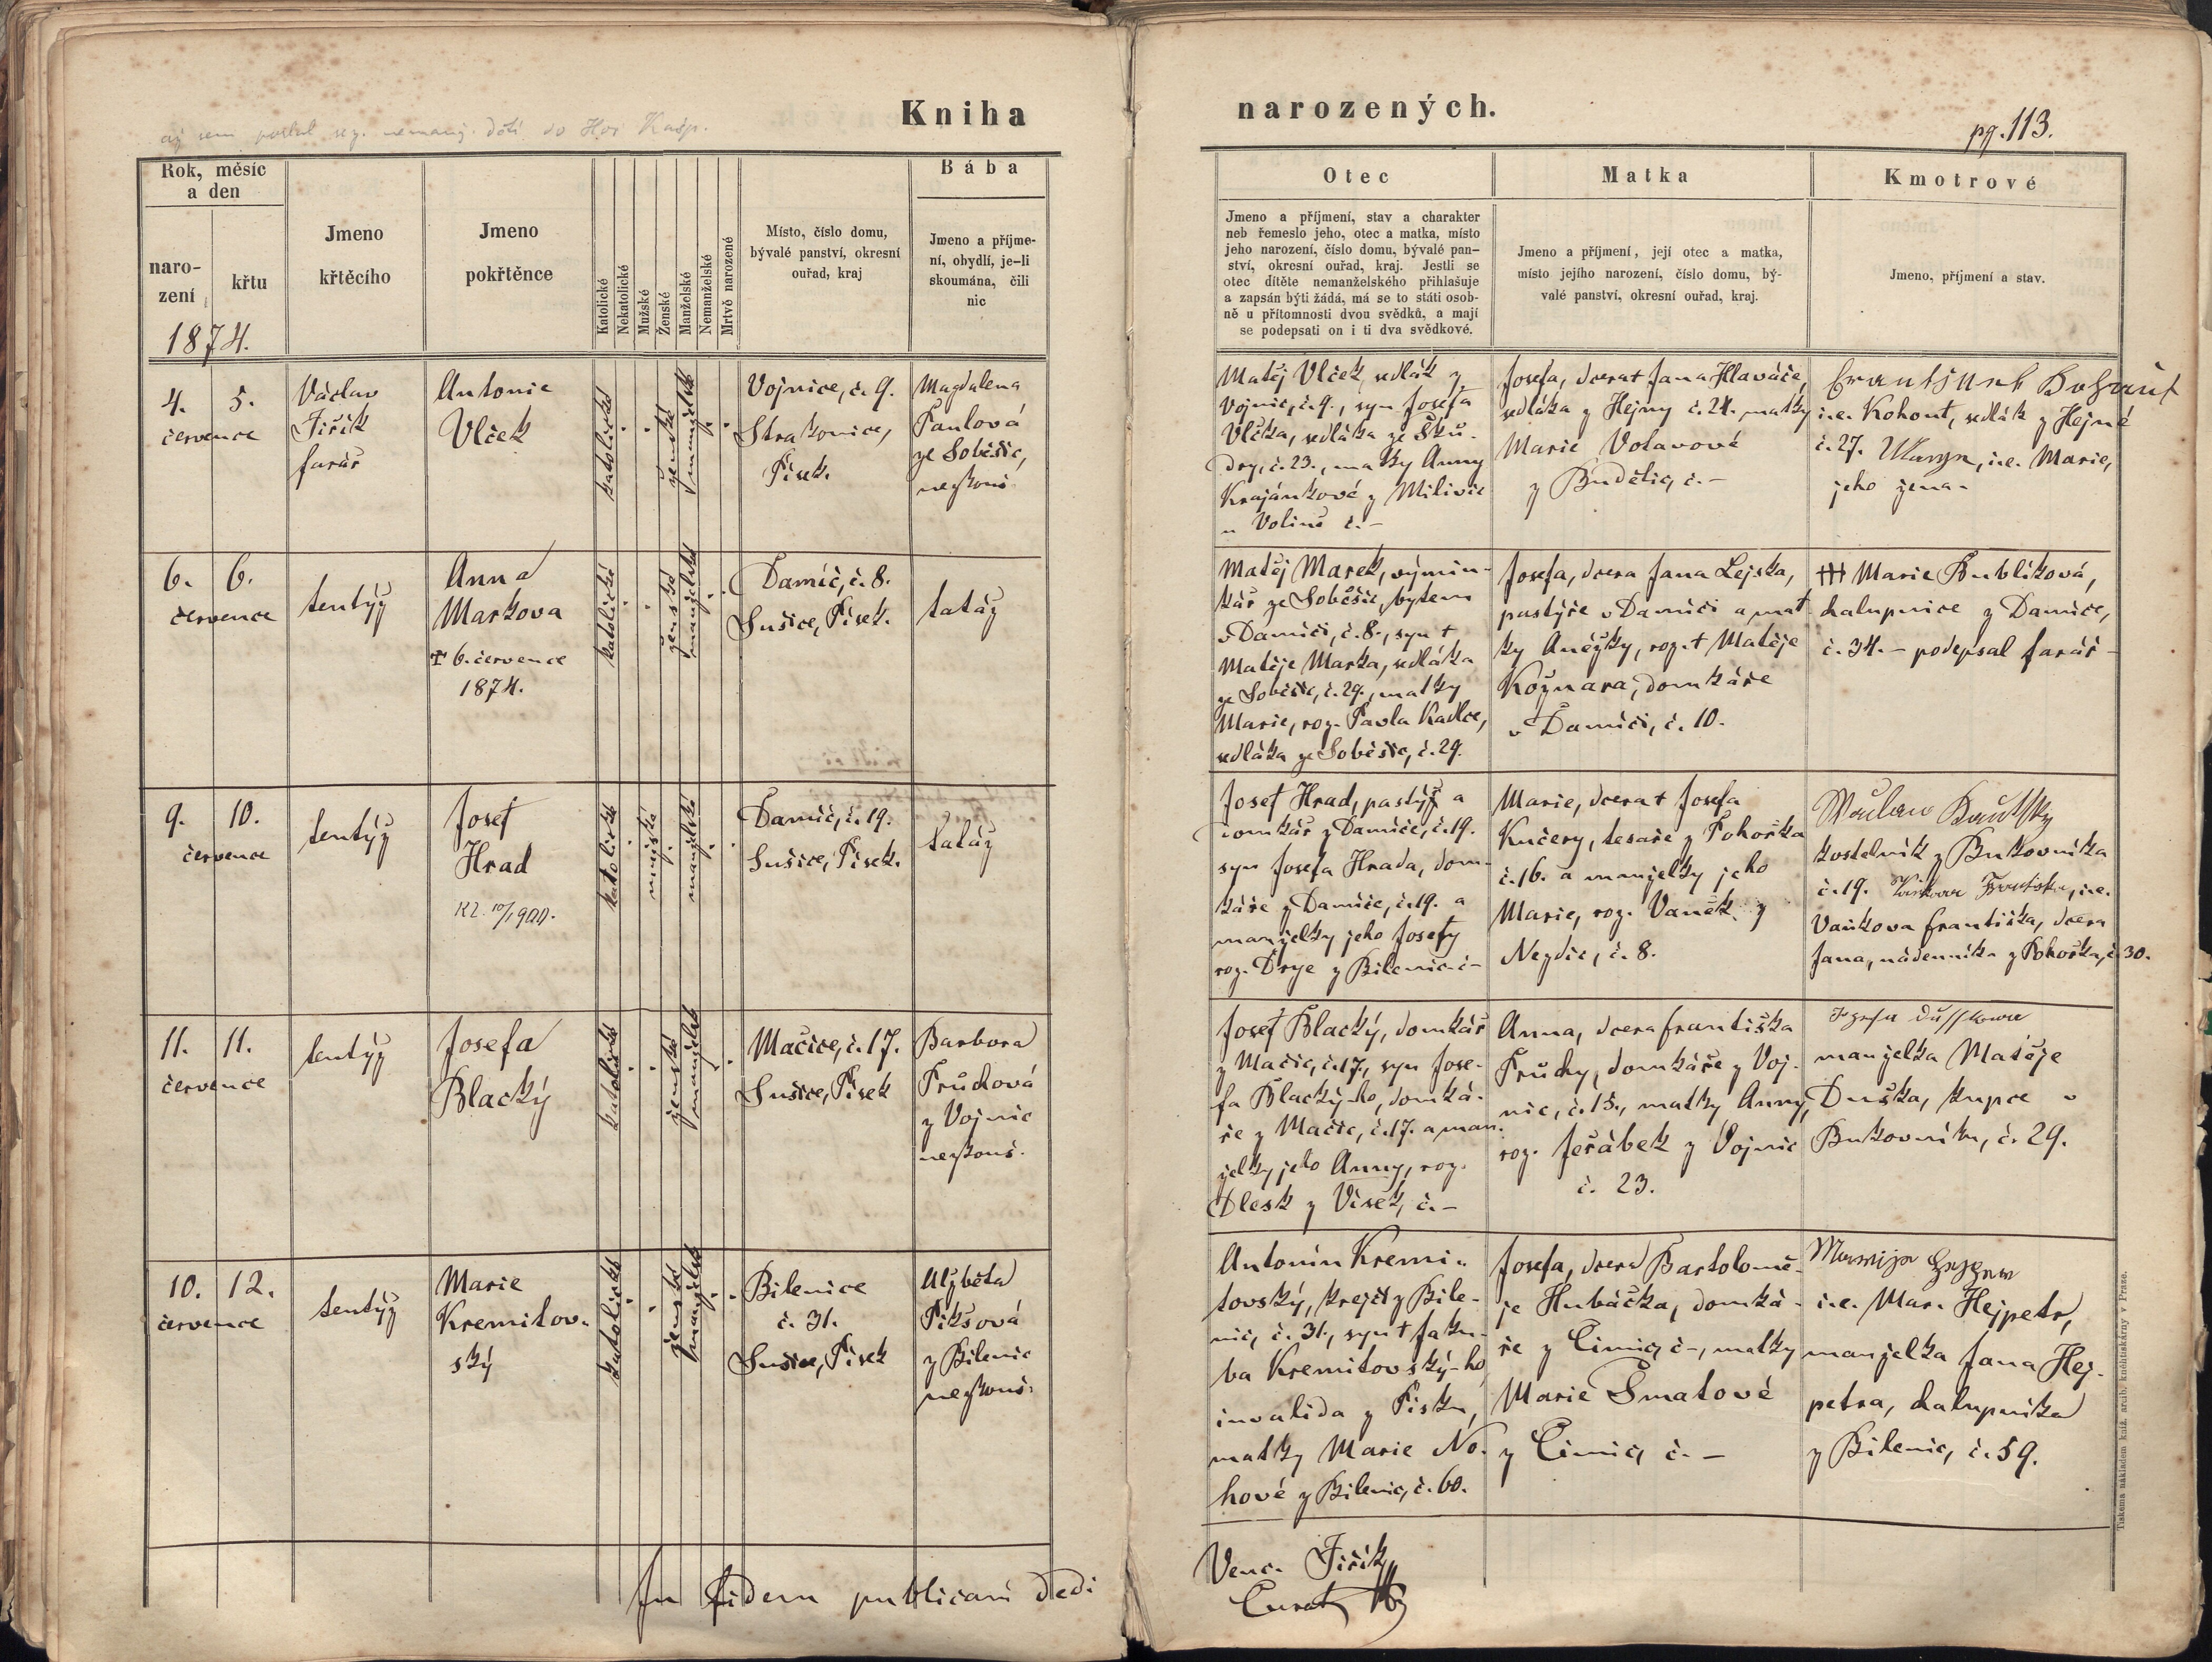 Kniha
narozených.
pg. 113.
Rok, měsíc
a den
naro-
zení
křtu
1874.
Jmeno
křtěcího
Jmeno
pokřtěnce
Katolické
Nekatolické
Mužské
Ženské
Manželské
Nemanželské
Mrtvě narozené
Místo, číslo domu,
bývalé panství, okresní
ouřad, kraj
Bába
Jmeno a příjme-
ní, obydlí, je-li
skoumána, čili
nic
Otec
Jmeno a příjmení, stav a charakter
neb řemeslo jeho, otec a matka, místo
jeho narození, číslo domu, bývalé pan-
ství, okresní ouřad, kraj. Jestli se
otec dítěte nemanželského přihlašuje
a zapsán býti žádá, má se to státi osob-
ně u přítomnosti dvou svědků, a mají
se podepsati on i ti dva svědkové.
Matka
Jmeno a příjmení, její otec a matka,
místo jejího narození, číslo domu, bý-
valé panství, okresní ouřad, kraj.
Kmotrové
Jmeno, příjmení a stav.
4. 5.
července
Václav
Jiřík
farář
Antonie
Vlček
katolické
ženské
manželské
Vojnice, č. 9.
Strakonice,
Písek.
Magdalena
Pavlová
ze Soběšic,
nezkouš
Matěj Vlček, sedlák z
Vojnic, č. 9., syn Josefa
Vlčka, sedláka ze Sku-
dry, č. 23., matky Anny
Krajánkové z Milivic
u Volině č. –
Josefa, dcera † Jana Hlaváče,
sedláka z Hejny č. 24. matky
Marie Volavové
z Budětic, č. –
i.e. Kohout, sedlák z Hejné
č. 27. i.e. Marie,
jeho žena –
6. 6.
července
tentýž
Anna
Markova
† 6. července
1874.
katolické
ženské
manželské
Damíč, č. 8.
Sušice, Písek.
tatáž
Matěj Marek, výmin-
kář ze Soběšic, bytem
v Damíči, č. 8., syn †
Matěje Marka, sedláka
ze Soběšic, č. 29., matky
Marie, roz. Pavla Kadlce,
sedláka ze Soběšic, č. 29.
Josefa, dcera Jana Lejska,
pastýře v Damíči a mat
ky Anéžky, roz. † Matěje
Kožnara, domkáře
v Damíči, č. 10.
††† Marie Bublíková,
chalupnice z Damíče,
č. 34. – podepsal farář –
9. 10.
července
tentýž
Josef
Hrad
Kl. 10/1900.
katolické
mužské
manželské
Damíč, č. 19.
Sušice, Písek.
tatáž
Josef Hrad, pastýř a
domkář z Damíče, č. 19.
syn Josefa Hrada, dom-
káře z Damíče, č. 19. a
manželky jeho Josefy
roz. Drye z Bílenic č –
Marie, dcera † Josefa
Kučery, tesaře z Pohořka
č. 16. a manželky jeho
Marie, roz. Vaněk z
Nezdic, č. 8.
Wáclav Kautsky
kostelník z Bukovníka
č. 19. Vaňkova Františka, i.e.
Vaňkova Františka, dcera
Jana, nádenníka z Pohořka, č. 30.
11. 11.
července
tentýž
Josefa
Blacký
katolické
ženské
manželské
Mačice, č. 17.
Sušice, Písek
Barbora
Průchová
z Vojnic
nezkouš.
Josef Blacký, domkář
z Mačic, č. 17., syn Jose-
fa Blacký-ho, domká-
ře z Mačic, č. 17. a man-
želky jeho Anny, roz.
Dlesk z Vísek, č. –
Anna, dcera Františka
Průchy, domkáře z Voj-
nic, č. 15., matky Anny,
roz. Jeřábek z Vojnic
č. 23.
manželka Matěje
Duška, kupce v
Bukovníku, č. 29.
10. 12.
července
tentýž
Marie
Kremitov-
ský
katolické
ženské
manželské
Bílenice
č. 31.
Sušice, Písek
Alžběta
Pikšová
z Bílenic
nezkouš.
Antonín Kremi-
tovský, krejčí z Bíle-
nic, č. 31., syn † Jaku-
ba Kremitovský-ho
invalida z Písku,
matky Marie No-
hové z Bílenic, č. 60.
Josefa, dcera Bartolomě-
je Hubáčka, domká-
ře z Čimic, č –, matky
Marie Šmatové
z Čimic, č. –
i.e. Mar. Hejpetr,
manželka Jana Hej-
petra, chalupníka
z Bílenic, č. 59.
In fidem publicam dedi
Venc. Jiřík
Curat
Tiskema nákladem kníž. arcib. knihtiskárny v Praze.